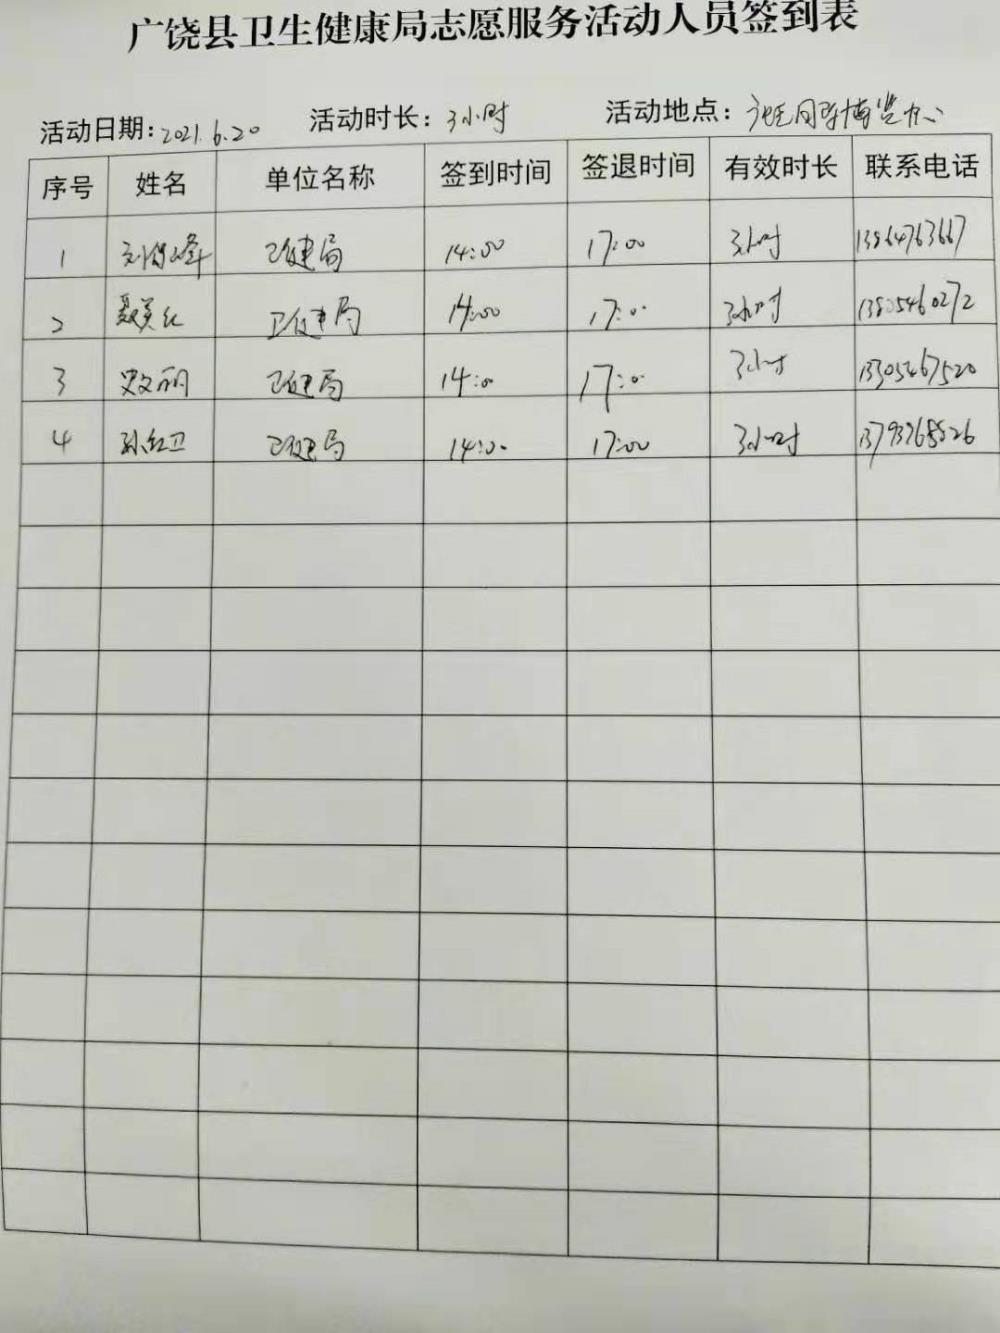 广饶县卫生健康局志愿服务活动人员签到表
活动日期:2021.6.20 活动时长:3小时 活动地点:广饶国际博览中心
序号 姓名 单位名称 签到时间 签退时间 有效时长 联系电话
1 卫健局 14:00 17:00 3小时 13864763667
2 聂美红 卫健局 14:00 17:00 3小时 13805460272
3 史文丽 卫健局 14:00 17:00 3小时 13305467520
4 孙红卫 卫健局 14:00 17:00 3小时